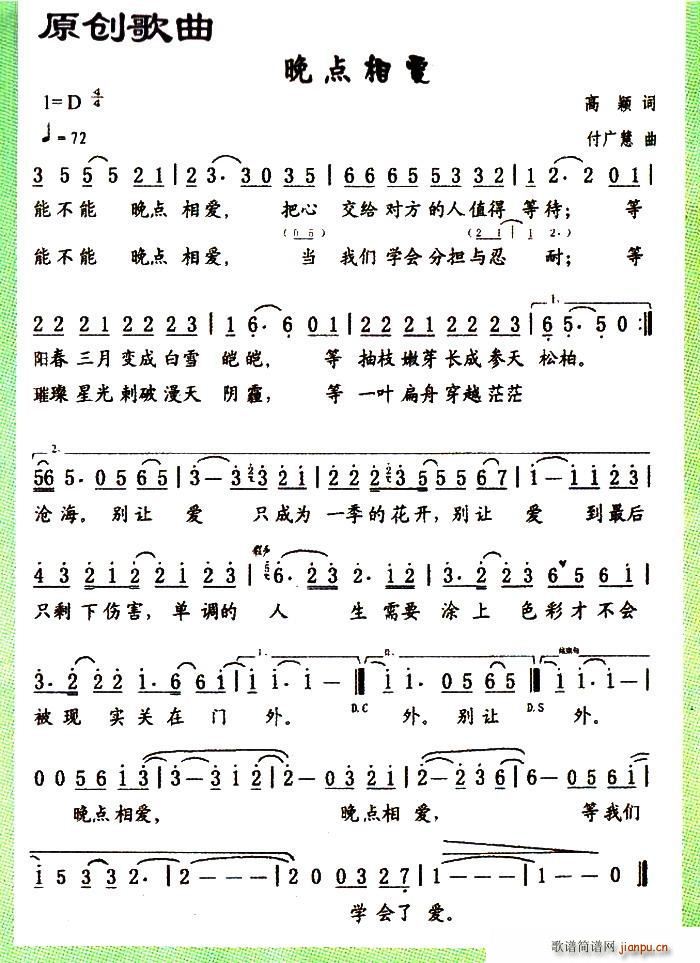 原创歌曲
晚点相爱
1=D 4/4
高颖 词
♩=72
付广慧 曲
3 5 5 5 2 1 | 2 3· 3 0 3 5 | 6 6 6 5 5 3 3 2 | 1 2· 2 0 1 |
能不能 晚点 相爱， 把心 交给 对方的人值得 等待； 等
(0 5) (2 1 | 1 2·)
能不能 晚点 相爱， 当 我们学会分担与忍 耐； 等
2 2 2 1 2 2 2 3 | 1 6· 6 0 1 | 2 2 2 1 2 2 2 3 | 6 5· 5 0 :||
阳春 三月 变成 白雪 皑皑， 等 抽枝 嫩芽 长成 参天 松柏。
璀璨 星光 刺破 漫天 阴霾， 等 一叶 扁舟 穿越 茫茫
沧海。别让 爱 只成为 一季的花开，别让 爱 到最后
只剩 下伤害，单调的 人 生 需要 涂上 色彩才不会
D.C
D.S
被现 实关在 门 外。 外。别让 外。
0 0 5 6 1 3 | 3 - 3 3 1 2 | 2 - 0 3 2 1 | 2 - 2 3 6 | 6 - 0 5 6 1 |
晚点相爱， 晚点相 爱， 等我们
1 5 3 3 2· | 2 - - - | 2 0 0 3 2 7 | 1 - - - | 1 - - 0 ‖
学会了 爱。
歌谱简谱网
jianpu.cn